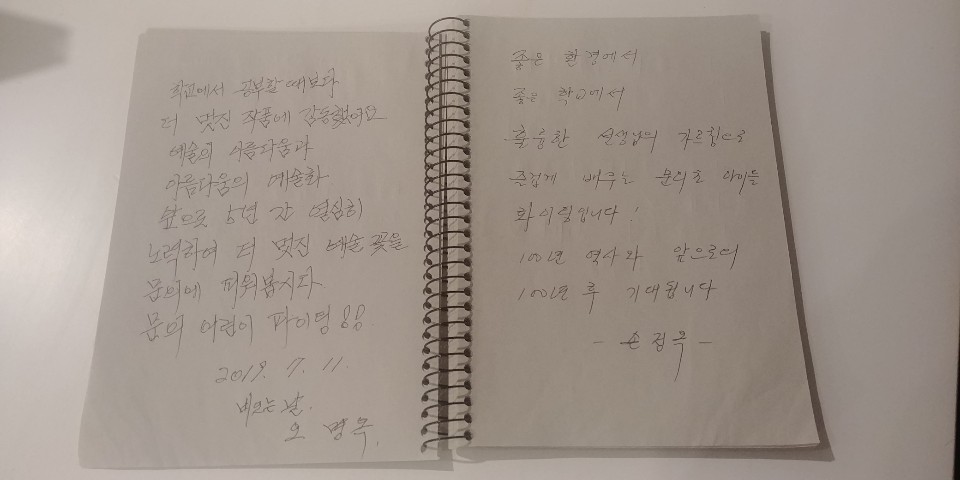 학교에서 공부할 때보다
더 멋진 작품에 감동했어요
예술의 아름다움과
아름다움의 예술화
앞으로 5년 간 열심히
노력하여 더 멋진 예술 꽃을
문의에 피워봅시다
문의 어린이 파이팅!!
2019. 7. 11.
비오는 날.
오 명옥.
좋은 환경에서
좋은 학교에서
훌륭한 선생님의 가르침으로
즐겁게 배우는 문의초 아이들
화이팅입니다!
100년 역사와 앞으로의
100년 후 기대됩니다